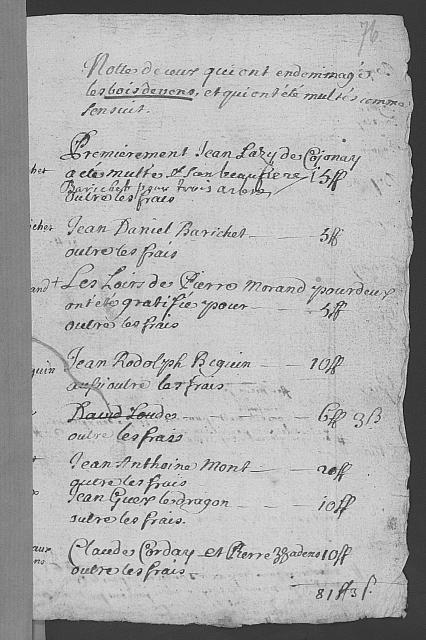 76
Notte de ceux qui ont endemmagés
les bois de vens, et qui ont été multés comme
sensuit.
Premierement Jean Lazy de Cojonay
a eté multé & son beaufrere 15 ff
Barichet pour trois arbres
outre les frais
Jean Daniel Barichet 5 ff
outre les frais
Les Loirs de Pierre Morand pour deux
ont eté gratifié pour 5 ff
outre les frais
Jean Rodolph Beguin 10 ff
aussi outre les frais
David Loude 6 ff 3 ß
outre les frais
Jean Anthoine Mont 20 ff
outre les frais
Jean Guex le dragon 10 ff
outre les frais.
Claude Corday et Pierre 10 ff
outre les frais
81 ff 3 ß.